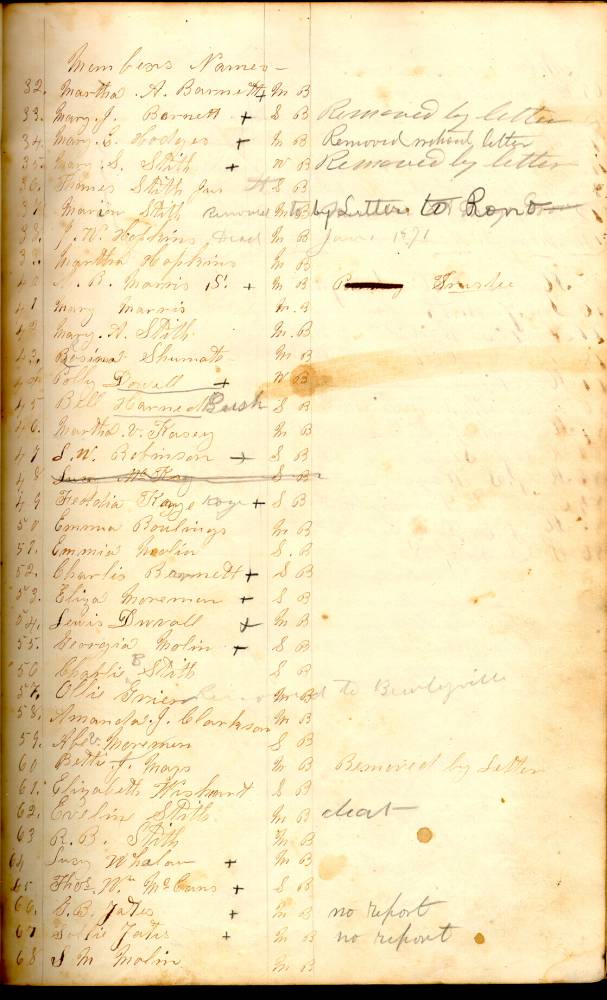 Members Names
32. Martha A. Barnett + M B
33. Mary J. Barnett + S B Removed by letter
34. Mary E. Hodges + M B Removed without letter
35. Mary S. Stith + W B Removed by letter
36. Thomas Stith Jur S B
37. Marion Stith Removed M B by Letter to Rono
38. J. W. Hopkins Dead M B Jan. 1871
39. Martha Hopkins M B
40. Morris + M B Trustee
41 Mary Marris M. B
42 Mary A. Stith M. B
43. Rosina Shumate M B
44. Polly Dowell + W B
45 Bell Harned Bush S B
46. Martha V. Kasey M B
47 S. W. Robinson + S B
48 S B
49 Kaye Kaye + S B
50 Emma Boulings M B
51. Emmia Molin S. B
52. Charlis Barnett + S B
53. Eliza Moremen + S B
54. Lewis Duvall + M B
55. Georgia Molin + S B
56 Charlie B Stith S B
57. Ollie Removed M B to Bewleyville
58. Amanda J. Clarkson M B
59. Abe Moremen S B
60 Betti J. Mays M B Removed by Letter
61. Elizabeth S B
62. Evelin Stith M B deat
63 R. B. Stith M B
64 Susy Whalan + M B
65 Thos. Wm. + S B
66. S. B. Yates + M B no report
67 Sollie Yates + M B no report
68 S M Molin M B